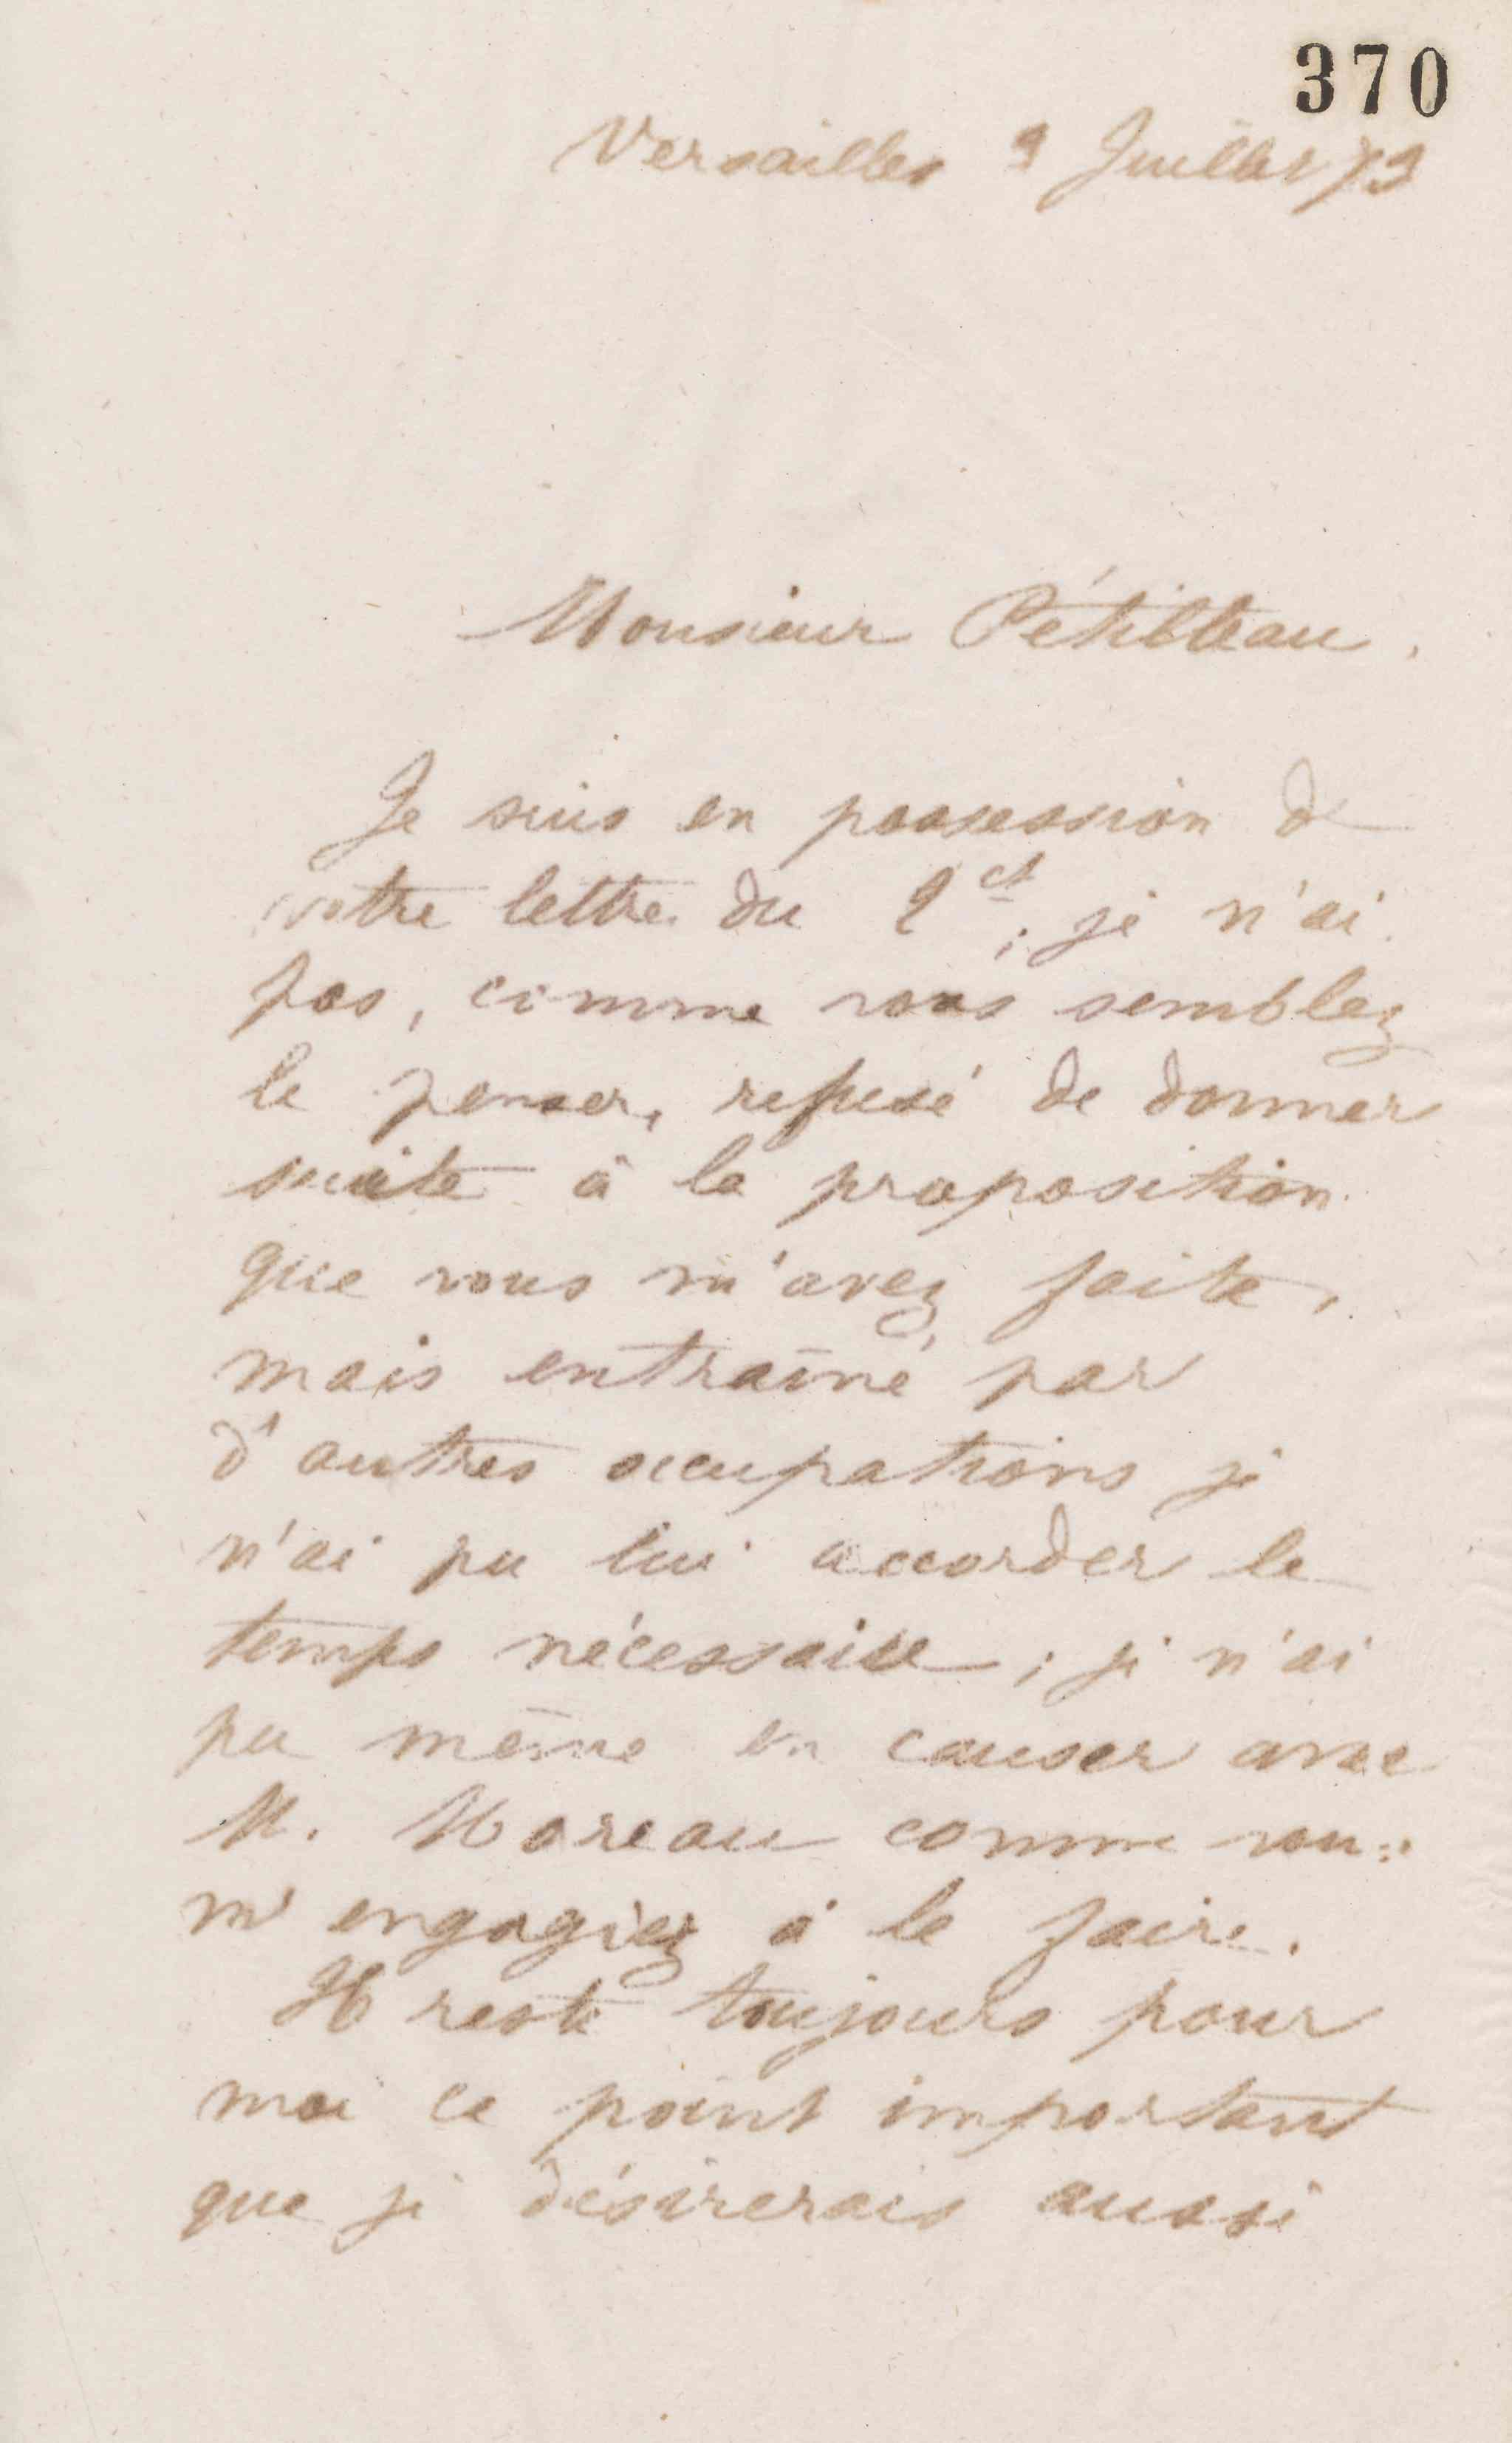 370
Versailles 9 Juillet 73
Monsieur Pétibteau.
Je suis en possession de
votre lettre du 2ct; je n'ai
pas, comme vous semblez
le penser, refusé de donner
suite à la proposition
que vous m'avez faite,
mais entraîné par
d'autres occupations je
n'ai pu lui accorder le
temps nécessaire; je n'ai
pu même en causer avec
M. Moreau comme vous
m'engagiez à le faire.
Il reste toujours pour
moi ce point important
que je désirerais aussi